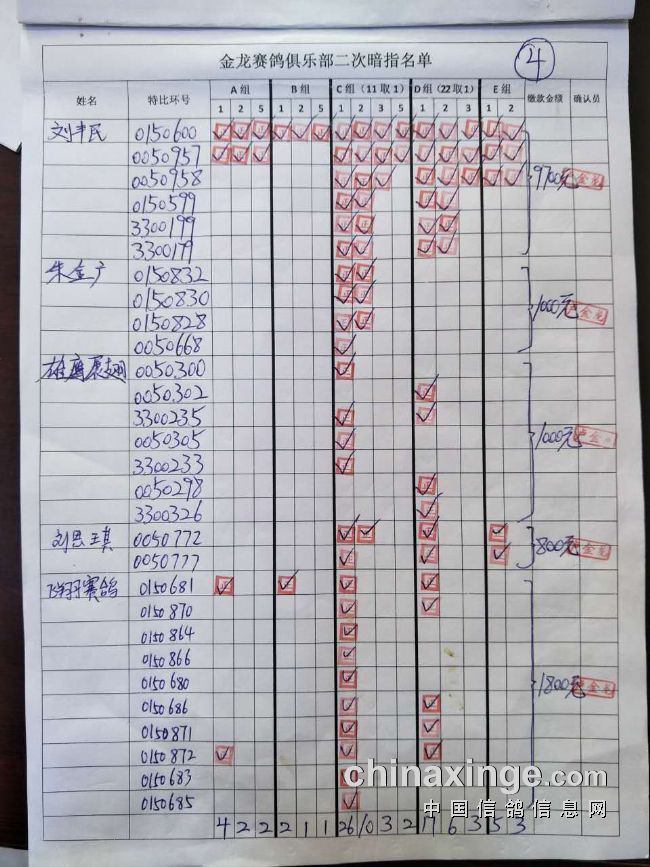 金龙赛鸽俱乐部二次暗指名单 4
姓名 特比环号 A 组 B 组 C 组（11 取 1） D 组（22 取 1） E 组 缴款金额 确认员
1 2 5 1 2 5 1 2 3 5 1 2 3 1 2
刘丰民 0150600 ✓ ✓ ✓ ✓ ✓ ✓ ✓ ✓ ✓ ✓ ✓ ✓ ✓ ✓ ✓
0050957 ✓ ✓ ✓ ✓ ✓ ✓ ✓ ✓ ✓ ✓ ✓ ✓
0050958 ✓ ✓ ✓ ✓ ✓ ✓ ✓ ✓ 9700元
0150599 ✓ ✓ ✓ ✓
3300199 ✓ ✓ ✓ ✓
3300179 ✓ ✓ ✓ ✓
朱金广 0150832 ✓ ✓
0150830 ✓ ✓ 1000元
0150828 ✓ ✓
0050668 ✓
雄鹰展翅 0050300 ✓
0050302 ✓
3300235 ✓ ✓
0050305 ✓ 1000元
3300233 ✓
0050298 ✓
3300326 ✓
刘思琪 0050772 ✓ ✓ ✓ ✓ 800元
0050777 ✓ ✓ ✓
飞翔赛鸽 0150681 ✓ ✓ ✓ ✓
0150870 ✓ ✓
0150864 ✓
0150866 ✓
0150680 ✓ 1800元
0150686 ✓ ✓
0150871 ✓ ✓
0150872 ✓ ✓ ✓
0150683 ✓
0150685 ✓
4 2 2 2 1 1 26 10 3 2 17 6 3 5 3
chinaxinge.com
中国信鸽信息网